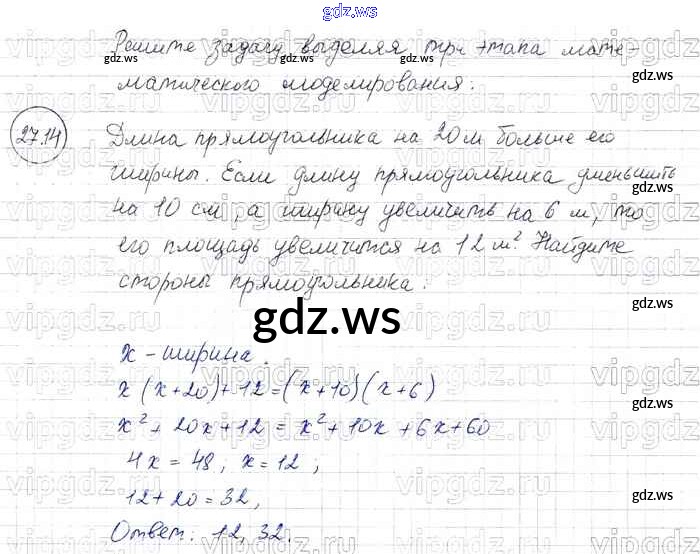 gdz.ws
Решите задачу, выделяя три этапа мате-
матического моделирования:
27.14
Длина прямоугольника на 20 м больше его
ширины. Если длину прямоугольника уменьшить
на 10 см, а ширину увеличить на 6 м, то
его площадь увеличится на 12 м². Найдите
стороны прямоугольника.
gdz.ws
x - ширина.
x(x+20)+12=(x+10)(x+6)
x² + 20x+12 = x²+10x+6x+60
4x = 48, x = 12;
12+20 = 32,
Ответ: 12, 32.
gdz.ws